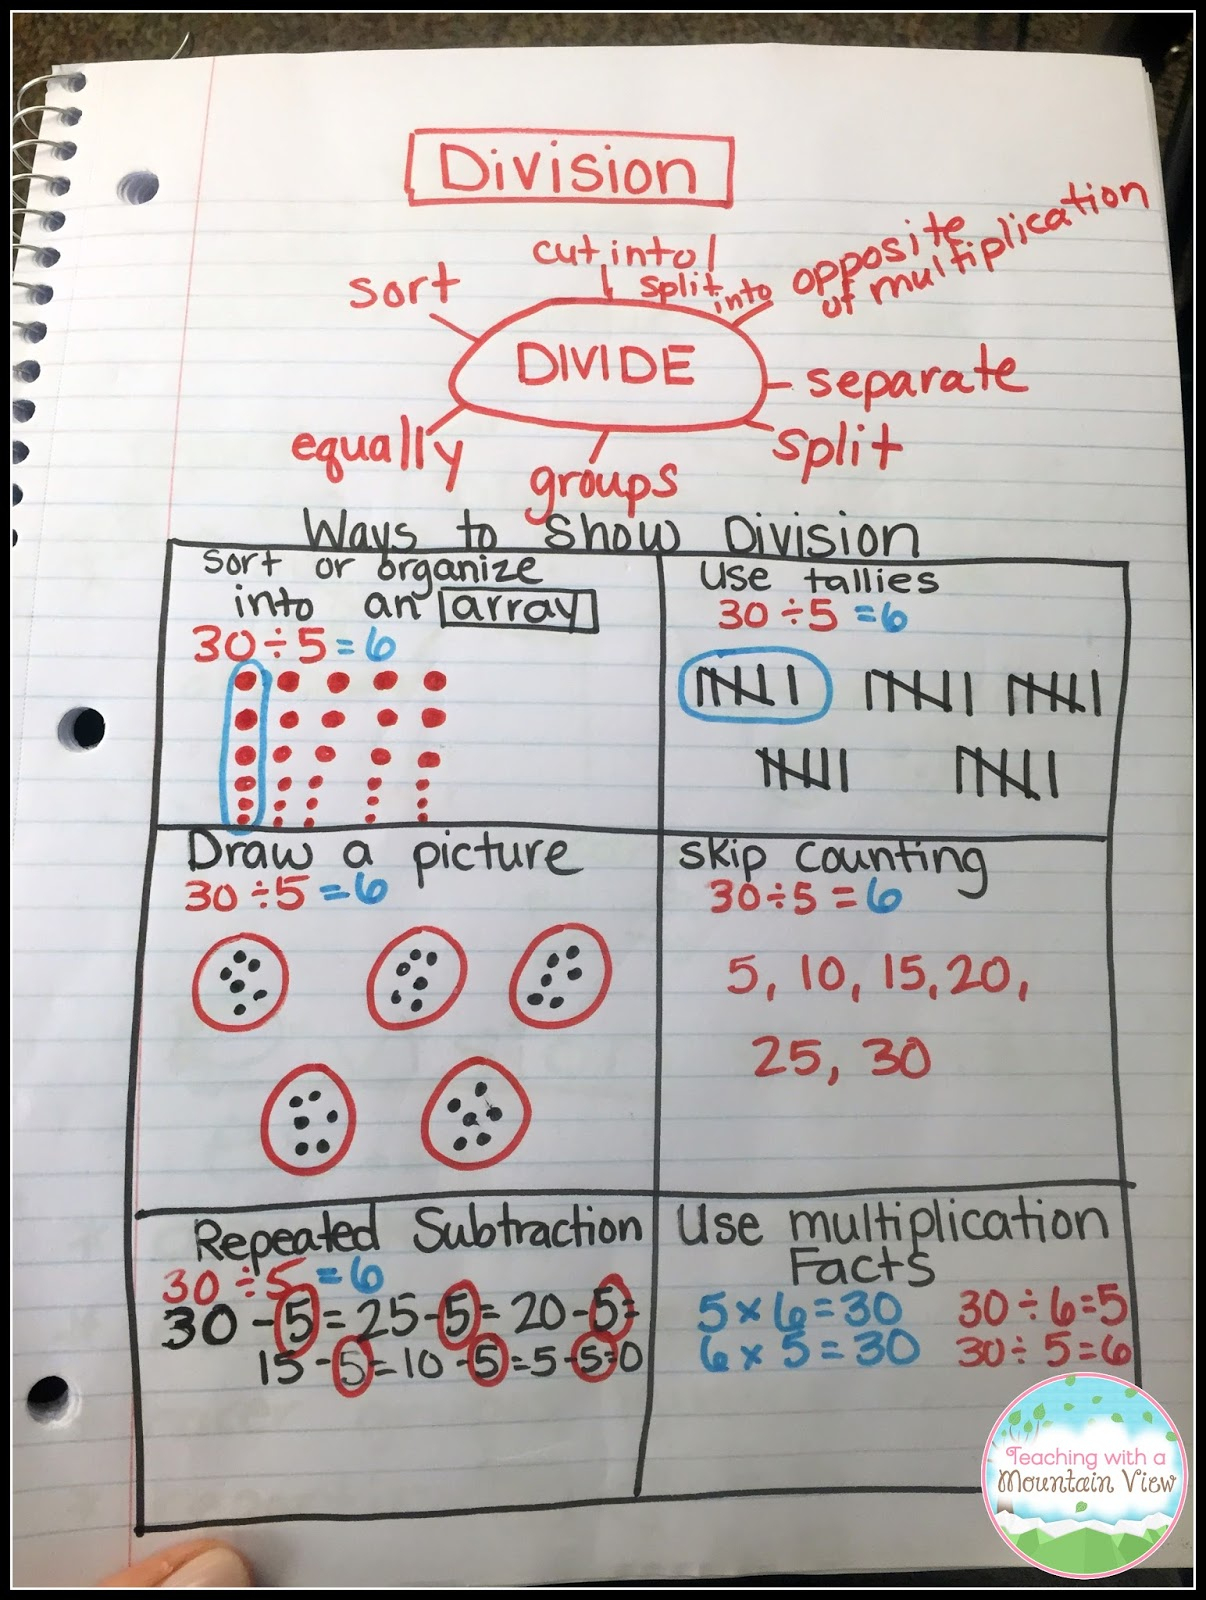 Division
cut into
split into
opposite
of multiplication
sort
DIVIDE
separate
equally
split
groups
Ways to Show Division
Sort or organize
into an array
30÷5=6
Use tallies
30÷5=6
Draw a picture
30÷5=6
Skip Counting
30÷5=6
5, 10, 15, 20,
25, 30
Repeated Subtraction
30÷5=6
30-5=25-5=20-5=
15-5=10-5=5-5=0
Use multiplication
Facts
5×6=30 30÷6=5
6×5=30 30÷5=6
Teaching with a
Mountain View